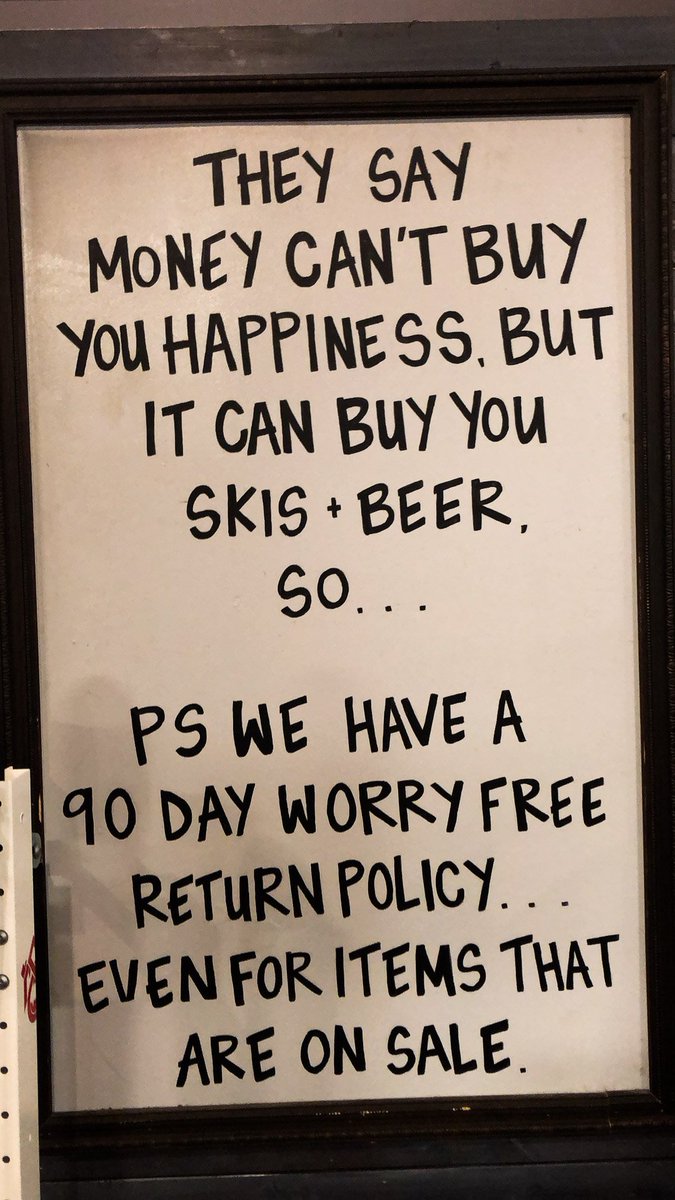 THEY SAY
MONEY CAN'T BUY
YOU HAPPINESS, BUT
IT CAN BUY YOU
SKIS + BEER,
SO...
PS WE HAVE A
90 DAY WORRY FREE
RETURN POLICY...
EVEN FOR ITEMS THAT
ARE ON SALE.